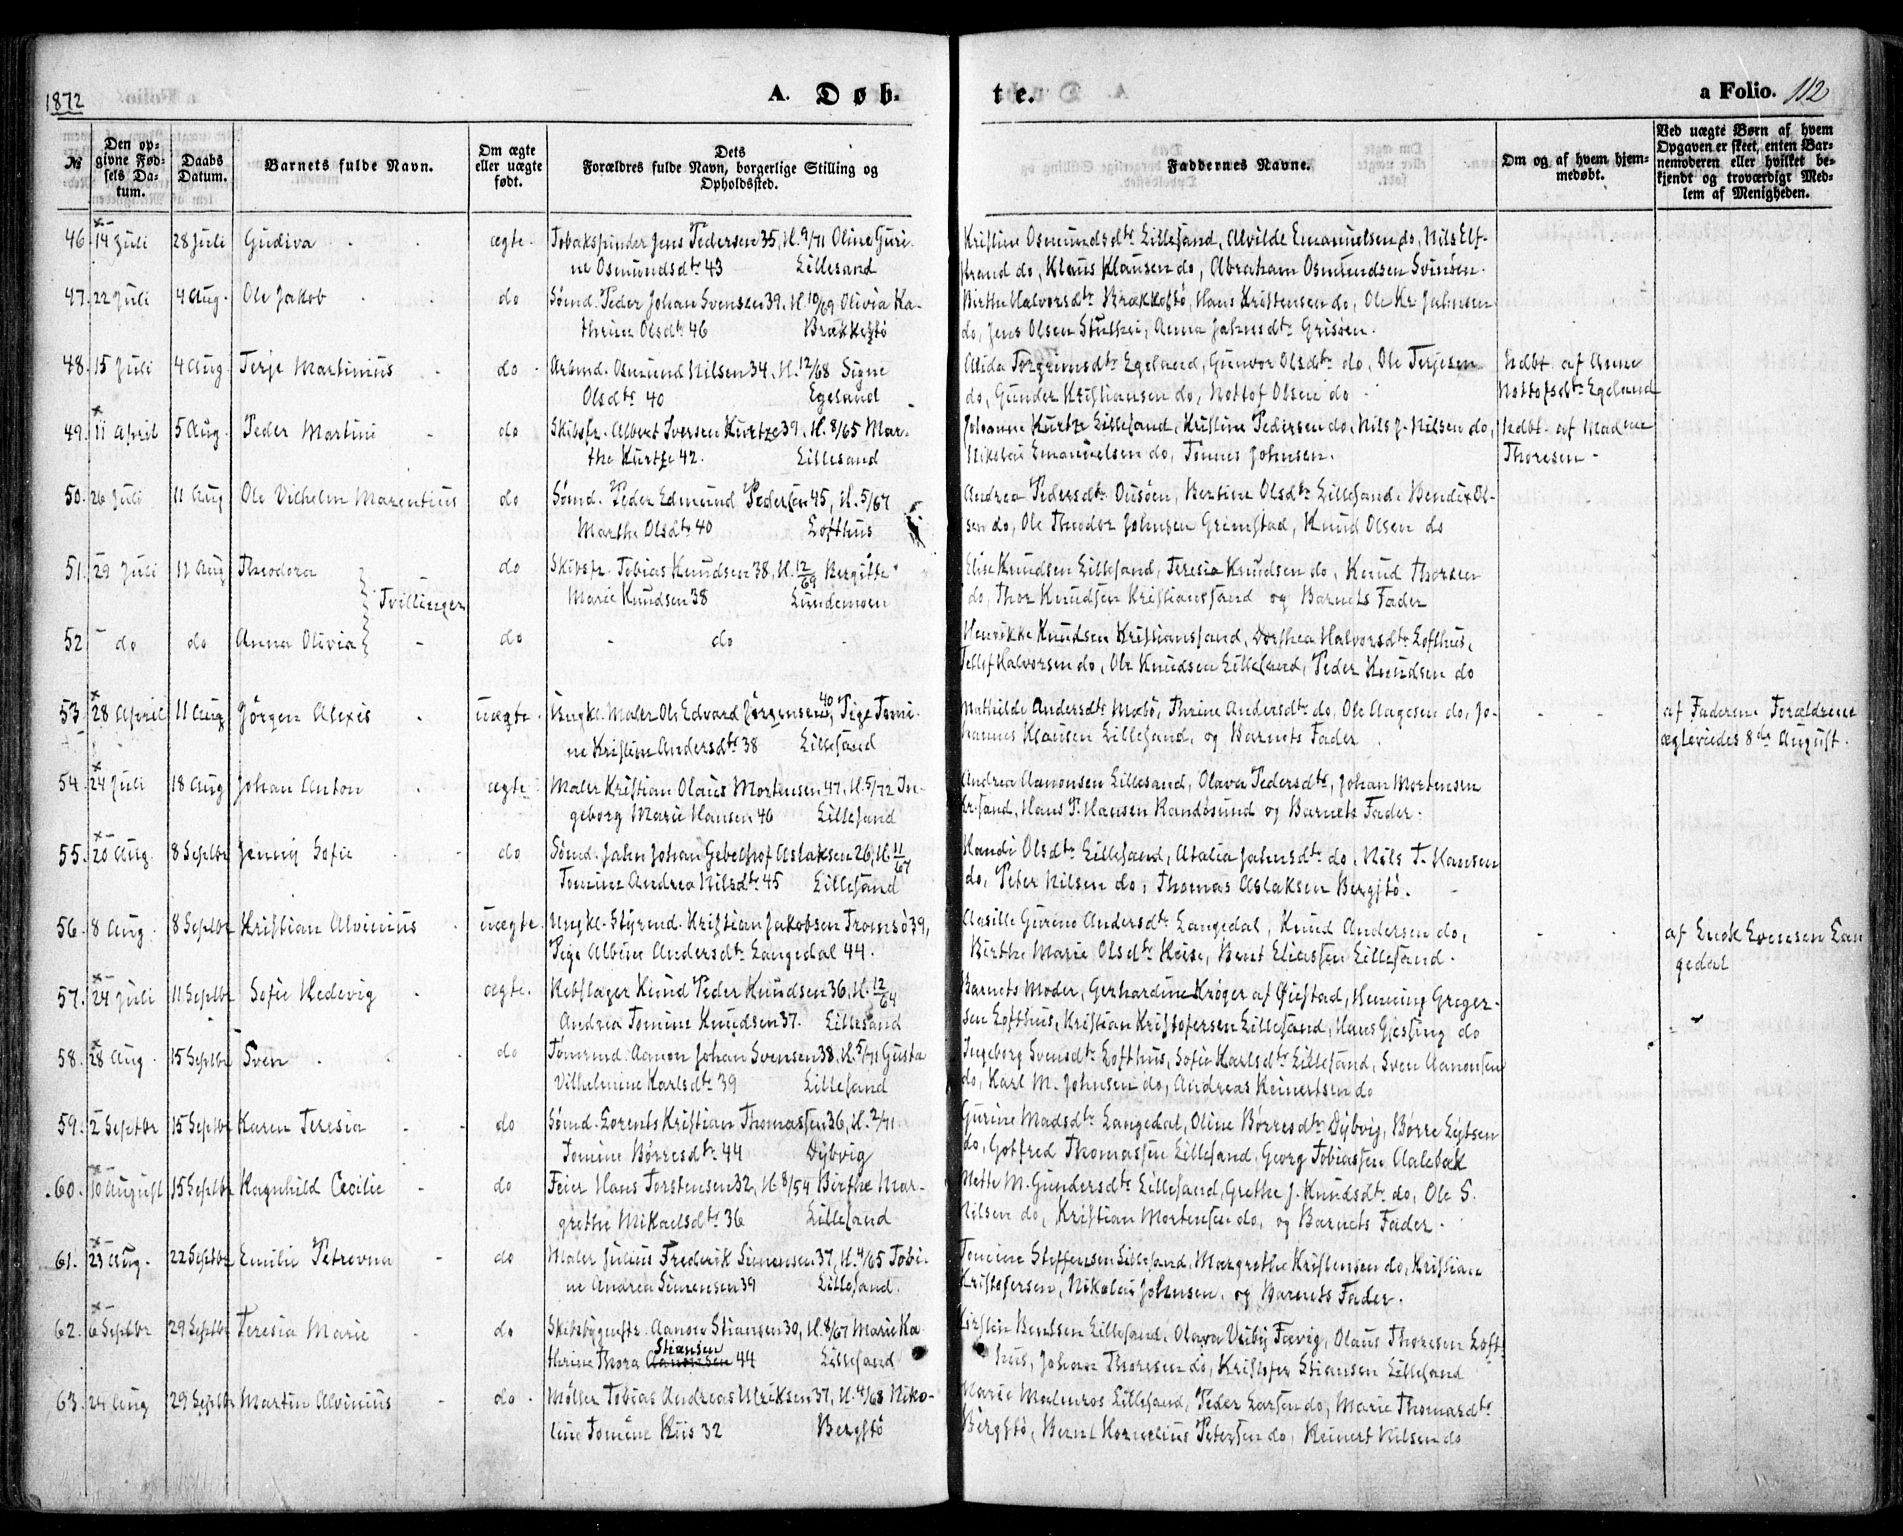 1872
A. Døb-
te.
a Folio. 112
№
Den opgivne Fødsels Datum.
Daabs Datum.
Barnets fulde Navn.
Om ægte eller uægte født.
Dets Forældres fulde Navn, borgerlige Stilling og Opholdssted.
Faddernes Navne.
Om og af hvem hjemmedøbt.
Ved uægte Børn af hvem Opgaven er skeet, enten Barnemoderen eller hvilket bekjendt og troværdigt Medlem af Menigheden.
46 14 Juli 28 Juli Gudiva ægte Tobakspinder Jens Pedersen 35, H. 9/71 Oline Guri- Kristine Osmundsdtr Lillesand, Alvilde Emanuelsen do, Nils Elf-
ne Osmundsdtr 43 Lillesand strand do, Klaus Klausen do, Abraham Osmundsen Svinøen.
47. 22 Juli 4 Aug. Ole Jakob do Sømd. Peder Johan Svensen 39. H. 10/69 Olivia Ka- Birthe Halvorsdtr Brækkestø, Hans Kristensen do, Ole Kr. Jahnsen
thrine Olsdtr 46 Brækkestø do, Jens Olsen, Anna Jahnsdtr Grisøen.
48. 15 Juli 4 Aug Terje Martinius do Arbmd. Osmund Nilsen 34, H. 12/68 Signe Alida Torgrimsdtr Egeland, Gunvor Olsdtr do, Ole Terjesen Hdbt. af Anne
Olsdtr 40 Egeland do, Gunder Kristiansen do, Nottof Olsen do Nottofsdtr Egeland
49. 11 April 5 Aug. Peder Martini do Skibsfr. Albert Iversen Kurtze 39, H. 8/65 Mar- Johanne Kurtze Lillesand, Kristine Pedersen do, Nils J. Nilsen do, Hdbt. af Madme
the Kurtze 42. Lillesand Nikolai Emanuelsen do, Tønnes Johnsen. Thoresen
50. 26 Juli 11 Aug Ole Vilhelm Marentius do Sømd. Peder Edmund Pedersen 45, H. 5/67 Andrea Pedersdtr, Bertine Olsdtr Lillesand, Bendix Ol-
Marthe Olsdtr 40 Lofthus sen do, Ole Theodor Johnsen Grimstad, Knud Olsen do
51. 29 Juli 11 Aug Theodora do Skibsfr. Tobias Knudsen 38, H. 12/69 Bergitte Elise Knudsen Lillesand, Teresia Knudsen do, Knud Thorsen
Tvillinger Marie Knudsen 38 Lundemoen do, Thor Knudsen Kristianssand og Barnets Fader
52 do do Anna Olivia do do Henrikke Knudsen Kristianssand, Dorthea Halvorsdtr Lofthus,
Tellef Halvorsen do, Ole Knudsen Lillesand, Peder Knudsen do
53. 28 April 11 Aug Jørgen Alexis uægte. Ungkl. Maler Ole Edvard Jørgensen 40, Pige Tomi- Mathilde Andersdtr Mæbø, Thrine Andersdtr do, Ole Aagesen do, Jo- af Faderen. Forældrene
ne Kristine Andersdtr 38 Lillesand hannes Klausen Lillesand, og Barnets Fader ægteviedes 8de August.
54. 24 Juli 18 Aug Johan Anton ægte Maler Kristian Olaus Mortensen 47, H. 5/72 In- Andrea Aanonsen Lillesand, Olava Pedersdtr, Johan Mortensen
geborg Marie Hansen 46 Lillesand Kr.sand, Hans P. Hansen Randøsund og Barnets Fader.
55. 20 Aug. 8 Septbr Jenny Sofie do Sømd. Jahn Johan Aslaksen 26, H. 11/67 Randi Olsdtr Lillesand, Atalia Jahnsdtr do, Nils T. Hansen
Tomine Andrea Nilsdtr 45 Lillesand do, Peter Nilsen do, Thomas Aslaksen Bergstø.
56. 8 Aug. 8 Septbr Kristian Alvinius uægte. Ungkl. Styrmd. Kristian Jakobsen Tromsø 39, Aasille Gurine Andersdtr Langedal, Knud Andersen do, af Enok Evensen Lan
Pige Albine Andersdtr Langedal 44. Birthe Marie Olsdtr Heise, Bent Eliassen Lillesand. gedal
57. 24 Juli 11 Septbr Sofie Hedevig ægte. Rebslager Knud Peder Knudsen 36, H. 12/64 Barnets Moder, Gerhardine Krøger af Øiestad, Henning Greger-
Andrea Tomine Knudsen 37. Lillesand sen Lofthus, Kristian Kristofersen Lillesand, Hans Gjesting do
58. 28 Aug. 15 Septbr Sven do Tømmd. Aanon Johan Svensen 38, H. 5/71 Gusta Ingeborg Svensdtr Lofthus, Sofie Karlsdtr Lillesand, Sven Aanonsen
Vilhelmine Karlsdtr 39 Lillesand do, Karl M. Johnsen do, Andreas Reinertsen do
59. 2 Septbr 15 Septbr Karen Teresia do Sømd. Lorents Kristian Thomassen 36, H. 2/71 Gurine Madsdtr Langedal, Oline Børresdtr Dybvig, Børre Lystsen
Tomine Børresdtr 44 Dybvig do, Gotfred Thomassen Lillesand, Georg Tobiassen Aalebæk
60. 10 August 15 Septbr Ragnhild Cecilie do Feier Hans Torstensen 32, H. 8/54 Birthe Mar- Mette M. Gundersdtr Lillesand, Grethe J. Knudsdtr do, Ole S.
grethe Mikaelsdtr 36 Lillesand Nilsen do, Kristian Mortensen do, og Barnets Fader.
61. 23 Aug. 22 Septbr Emilie Petrovna do Maler Julius Frederik Simensen 37, H. 4/65 Tobi- Tomine Steffensen Lillesand, Margrethe Kristensen do, Kristian
ne Andrea Simensen 39 Lillesand. Kristofersen, Nikolai Johnsen, og Barnets Fader.
62. 6 Septbr 29 Septbr Teresia Marie do Skibsbygmstr. Aanon Stiansen 30, H. 8/67 Marie Ka Kirstin Bentsen Lillesand, Olava Ueby Fævig, Olaus Thoresen Loft-
therine Thora Aanonsen Stiansen 44 Lillesand hus, Johan Thoresen do, Kristofer Stiansen Lillesand
63. 24 Aug 29 Septbr Martin Alvinius do Møller Tobias Andreas Ulriksen 37, H. 4/68 Niko- Marie Malmros Lillesand, Peder Larsen do, Marie Thomasdtr
line Tomine Riis 32 Bergstø Bergstø, Bernt Kornelius Petersen do, Reinert Nilsen do